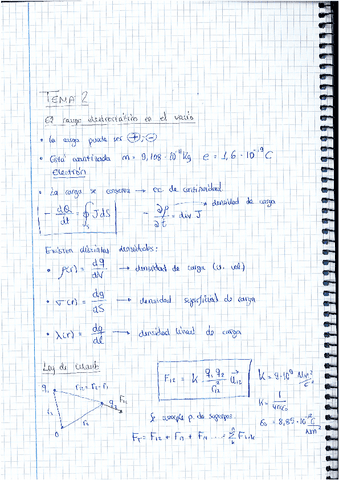 TEMA 2
El campo electrostático en el vacío
• La carga puede ser ⊕; ⊖
• Está cuantizada m = 9,108 · 10⁻³¹ Kg e = 1,6 · 10⁻¹⁹ C
electrón
• La carga se conserva → ec de continuidad
- dQ/dt = ∮ J dS - ∂ρ/∂t = div J → densidad de carga
Existen distintas densidades:
• ρ(r) = dq/dV → densidad de carga (u. vol)
• σ(r) = dq/dS → densidad superficial de carga
• λ(r) = dq/dl → densidad lineal de carga
Ley de Coulomb
F₁₂ = k · q₁ q₂ / r₁₂² u₁₂
K = 9·10⁹ Nm²/C²
K = 1/4πε₀
ε₀ = 8,85·10⁻¹² C²/Nm²
q₁ r₁₂ = r₂ - r₁ F₁₂
r₁ q₂
O r₂
Se cumple p. de superpos.